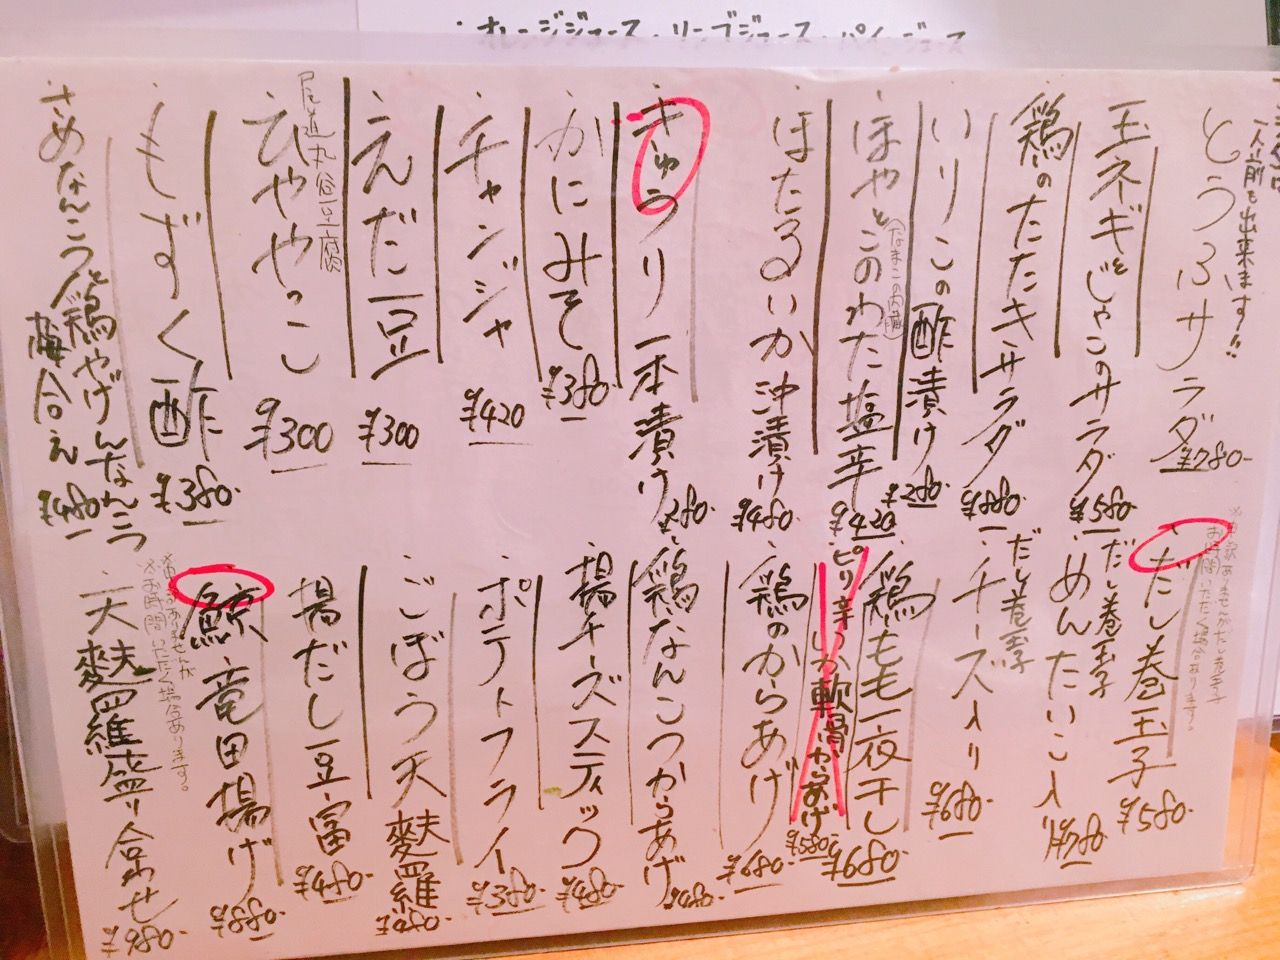 ・オレンジジュース・リンゴジュース・パインジュース
一人前も出来ます!!
とうふサラダ ¥780-
・玉ネギとじゃこのサラダ ¥580
・鶏のたたきサラダ ¥880-
・いりこの酢漬け ¥280-
・ほやとこのわた塩辛 ¥420
(なまこの内臓)
・ほたるいか沖漬け ¥480-
・きゅうり一本漬け ¥280-
・かにみそ ¥380-
・チャンジャ ¥420
・えだ豆 ¥300
尾道丸谷豆腐
・ひややっこ ¥300
・もずく酢 ¥380-
・さめなんこつと鶏やげんなんこつ
梅合え ¥480-
お時間いただく場合あります。
・だし巻玉子 ¥580-
だし巻玉子
・めんたいこ入り ¥780
だし巻玉子
・チーズ入り ¥680-
・鶏もも一夜干し ¥680-
ピリ辛いか軟骨からあげ ¥580-
・鶏のからあげ ¥680-
・鶏なんこつからあげ ¥480-
・揚チーズスティック ¥480-
・ポテトフライ ¥380-
・ごぼう天麩羅 ¥480-
・揚だし豆富 ¥480-
・鯨竜田揚げ ¥880-
※お時間いただく場合あります。
・天麩羅盛り合わせ ¥980-